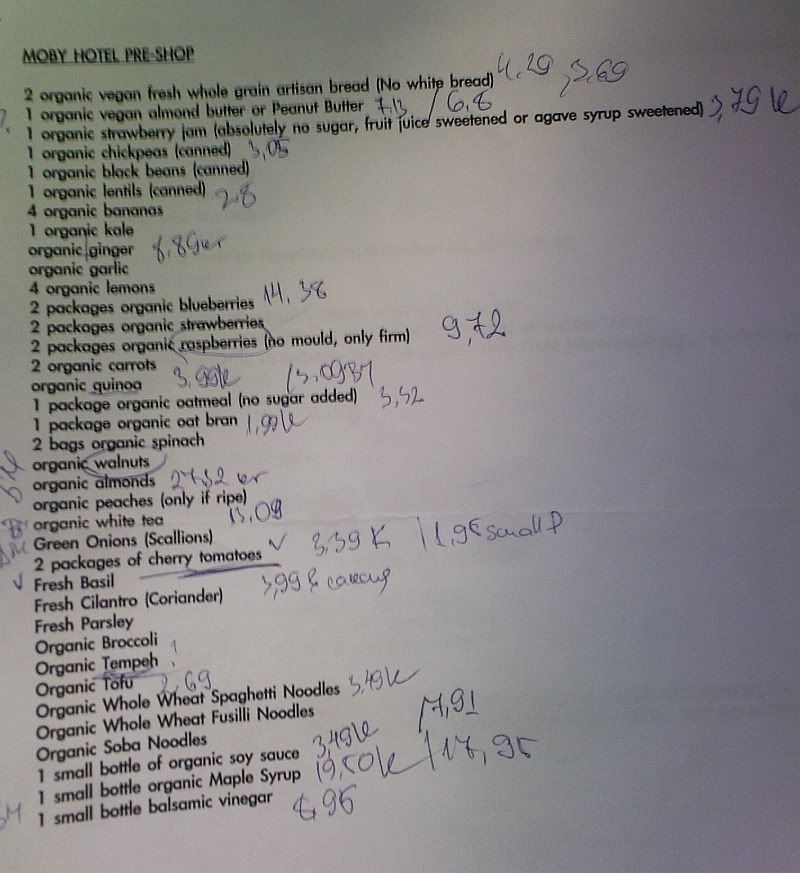 MOBY HOTEL PRE-SHOP
2 organic vegan fresh whole grain artisan bread (No white bread) 4,29 , 3,69
1 organic vegan almond butter or Peanut Butter 7,13 / 6,8
1 organic strawberry jam (absolutely no sugar, fruit juice sweetened or agave syrup sweetened) 3,79 k
1 organic chickpeas (canned) 3,05
1 organic black beans (canned)
1 organic lentils (canned) 2,8
4 organic bananas
1 organic kale
organic ginger
organic garlic
4 organic lemons
2 packages organic blueberries 14,38
2 packages organic strawberries
2 packages organic raspberries (no mould, only firm) 9,72
2 organic carrots
organic quinoa 3,99k
1 package organic oatmeal (no sugar added) 3,52
1 package organic oat bran 1,99k
2 bags organic spinach
organic walnuts
organic almonds
organic peaches (only if ripe)
organic white tea 13,09
Green Onions (Scallions)
2 packages of cherry tomatoes 3,39 K
Fresh Basil
Fresh Cilantro (Coriander) 3,99
Fresh Parsley
Organic Broccoli
Organic Tempeh
Organic Tofu 2,69
Organic Whole Wheat Spaghetti Noodles 3,49k
Organic Whole Wheat Fusilli Noodles
Organic Soba Noodles 7,91
1 small bottle of organic soy sauce 3,49k
1 small bottle organic Maple Syrup 19,50k / 17,95
1 small bottle balsamic vinegar